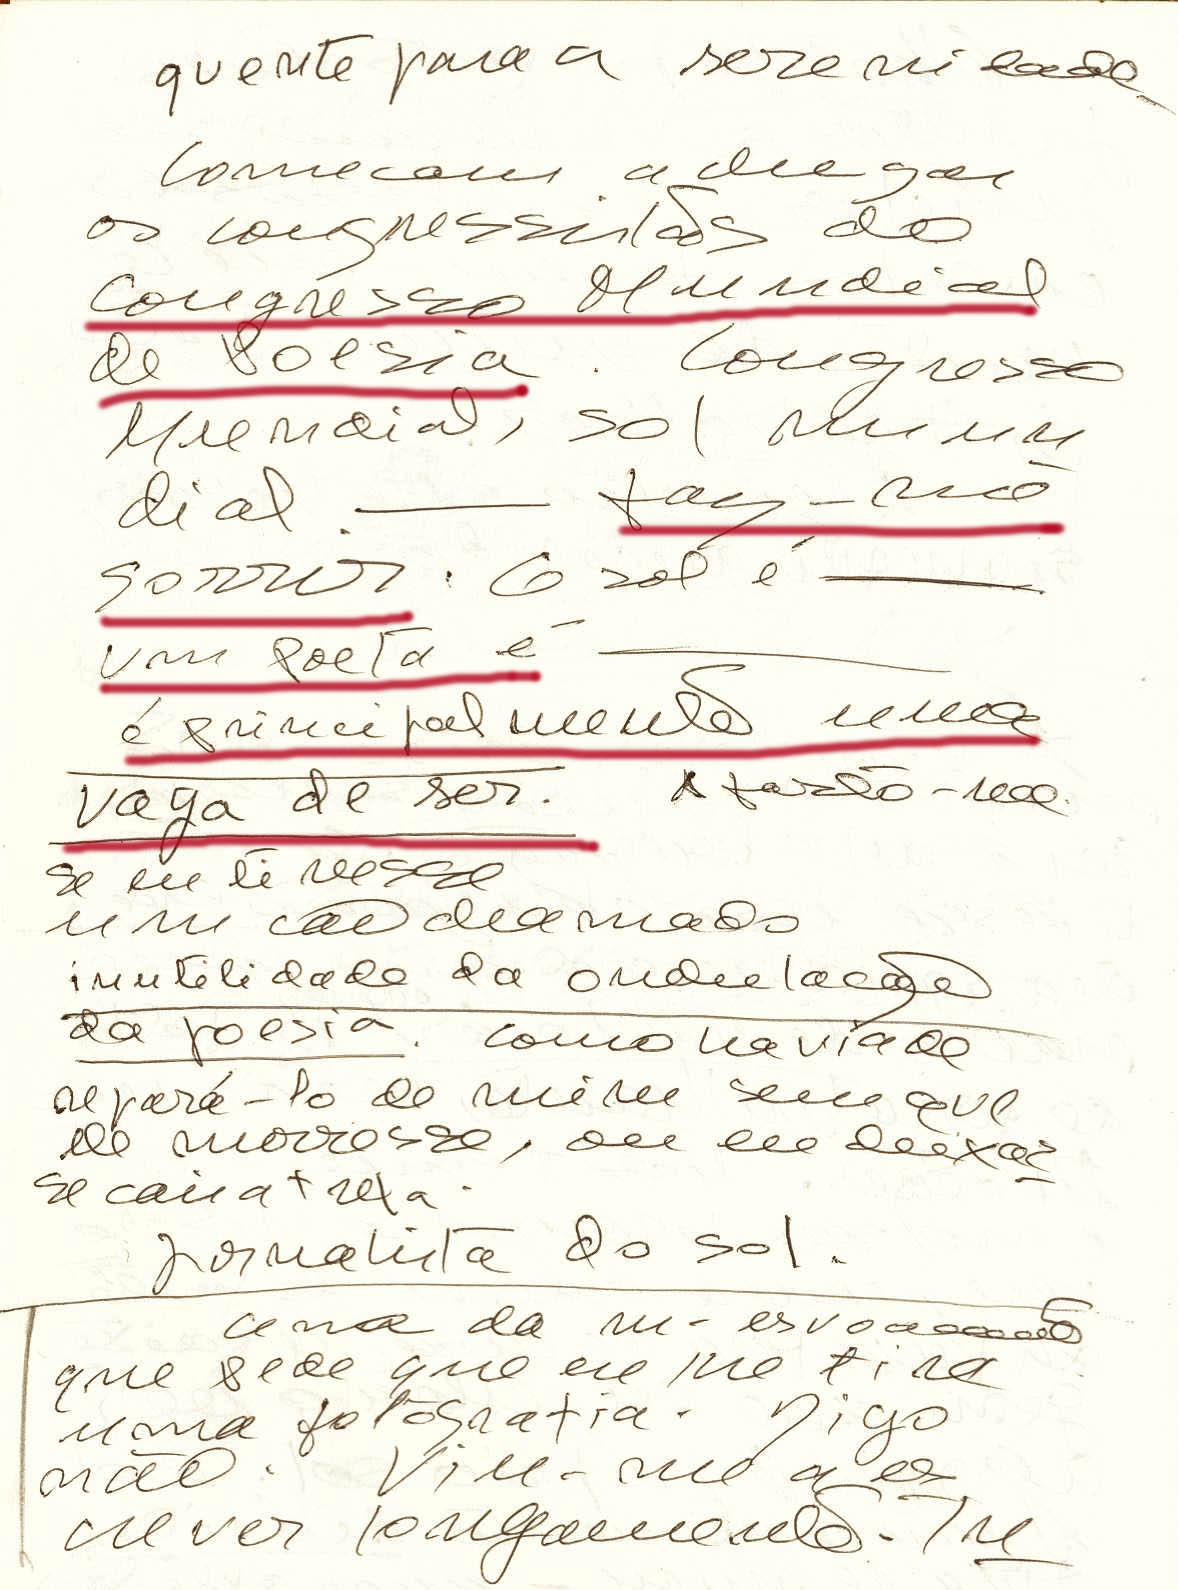 quente para a serenidade
Começam a chegar
os congressistas do
Congresso Mundial
de Poesia. Congresso
Mundial, sol mun
dial. — faz-me
sorrir. O sol é —
um poeta é —
é principalmente uma
vaga de ser.
se eu tivesse
um cão chamado
inutilidade da ondulação
da poesia. como havia de
separá-lo de mim sem que
ele morresse, ou eu deixas
se cair a trela.
jornalista do sol.
uma da m- esvoaçante
que pede que eu me tire
uma fotografia. Digo
não. Viu-me a es
crever longamente. Tu